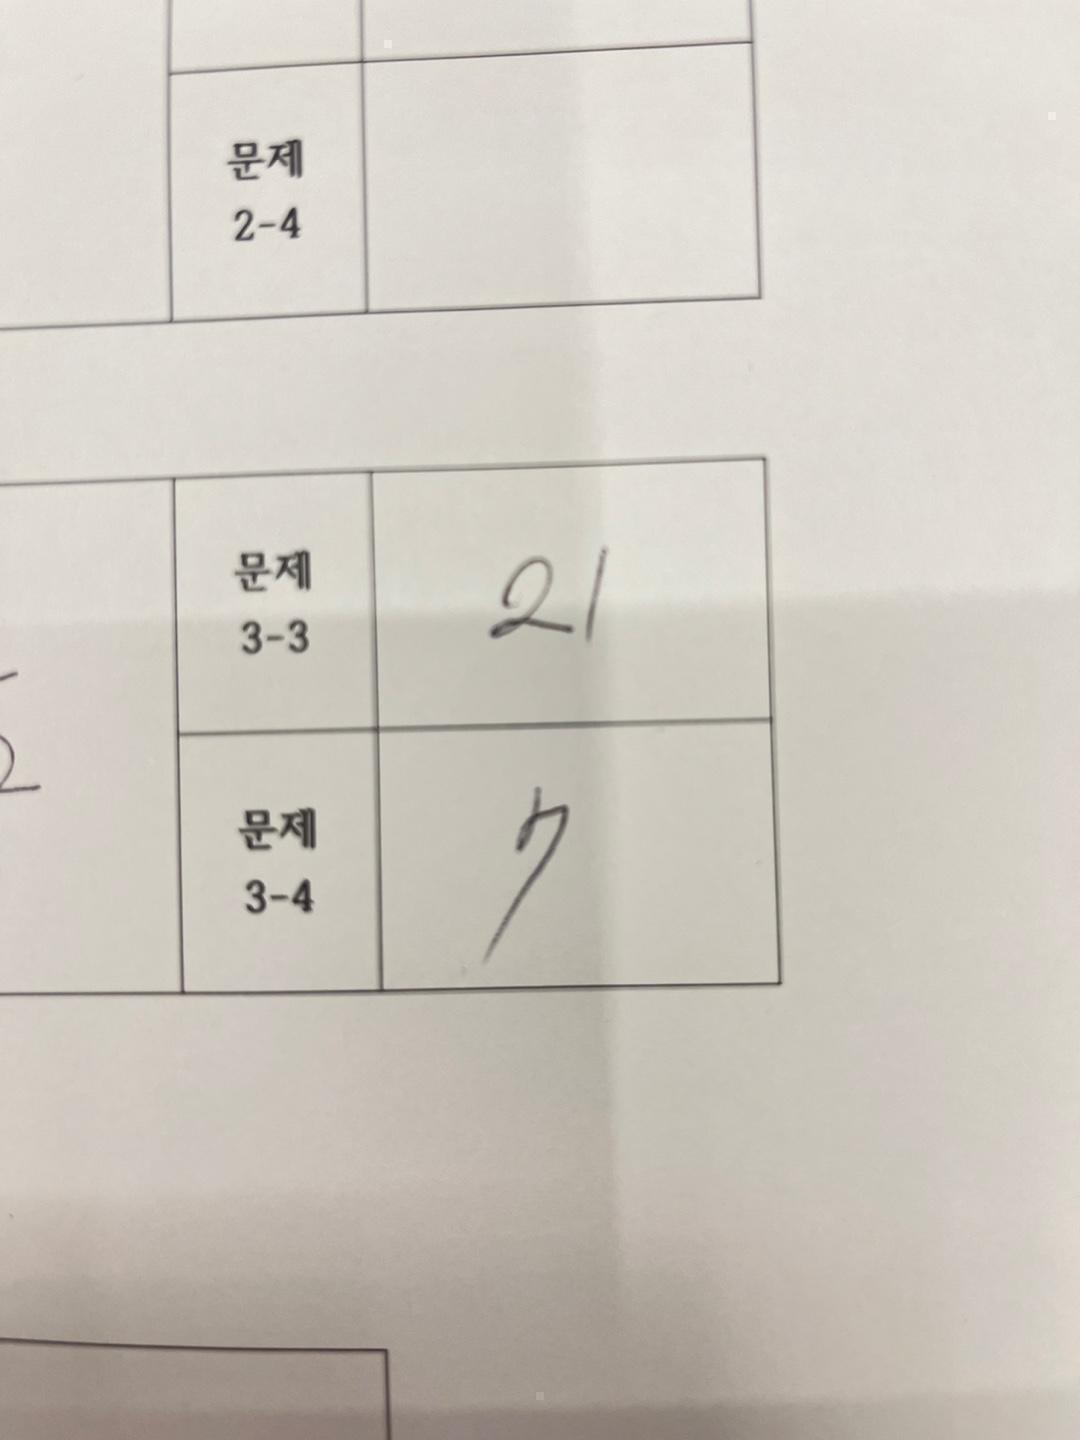 문제
2-4
문제
3-3
21
문제
3-4
7